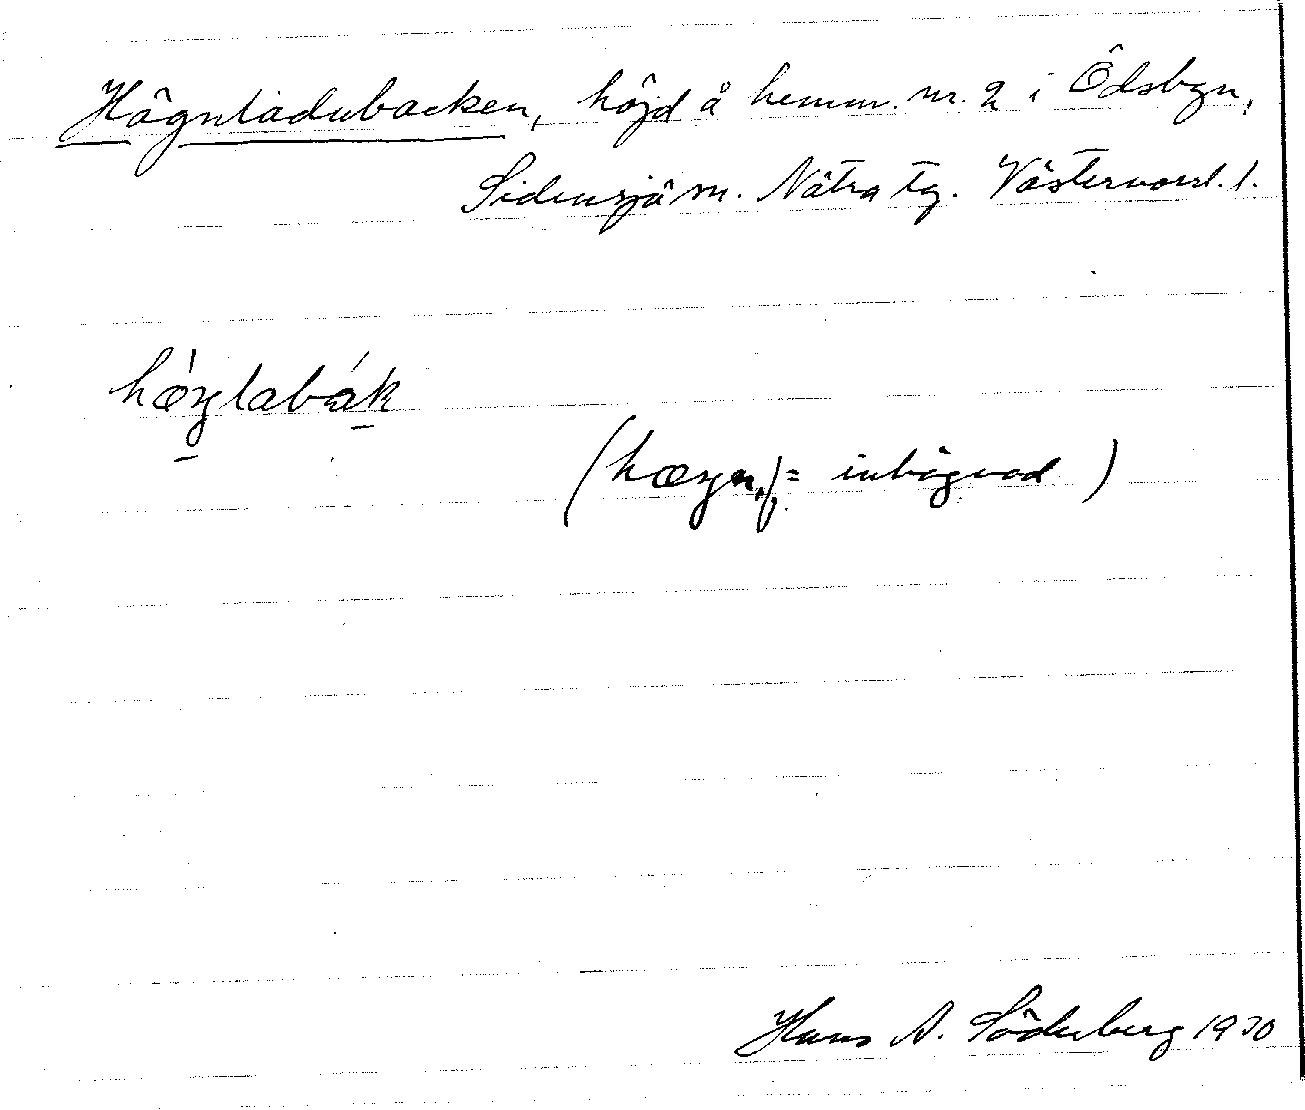 Hägnladubacken, höjd å hemm. nr. 2 i Ödsbyn,
Sidensjö sn. Nätra tg. Västernorrl. l.
hæŋlabák
(hæŋn, = inhägnad )
Hans A. Söderberg 1930